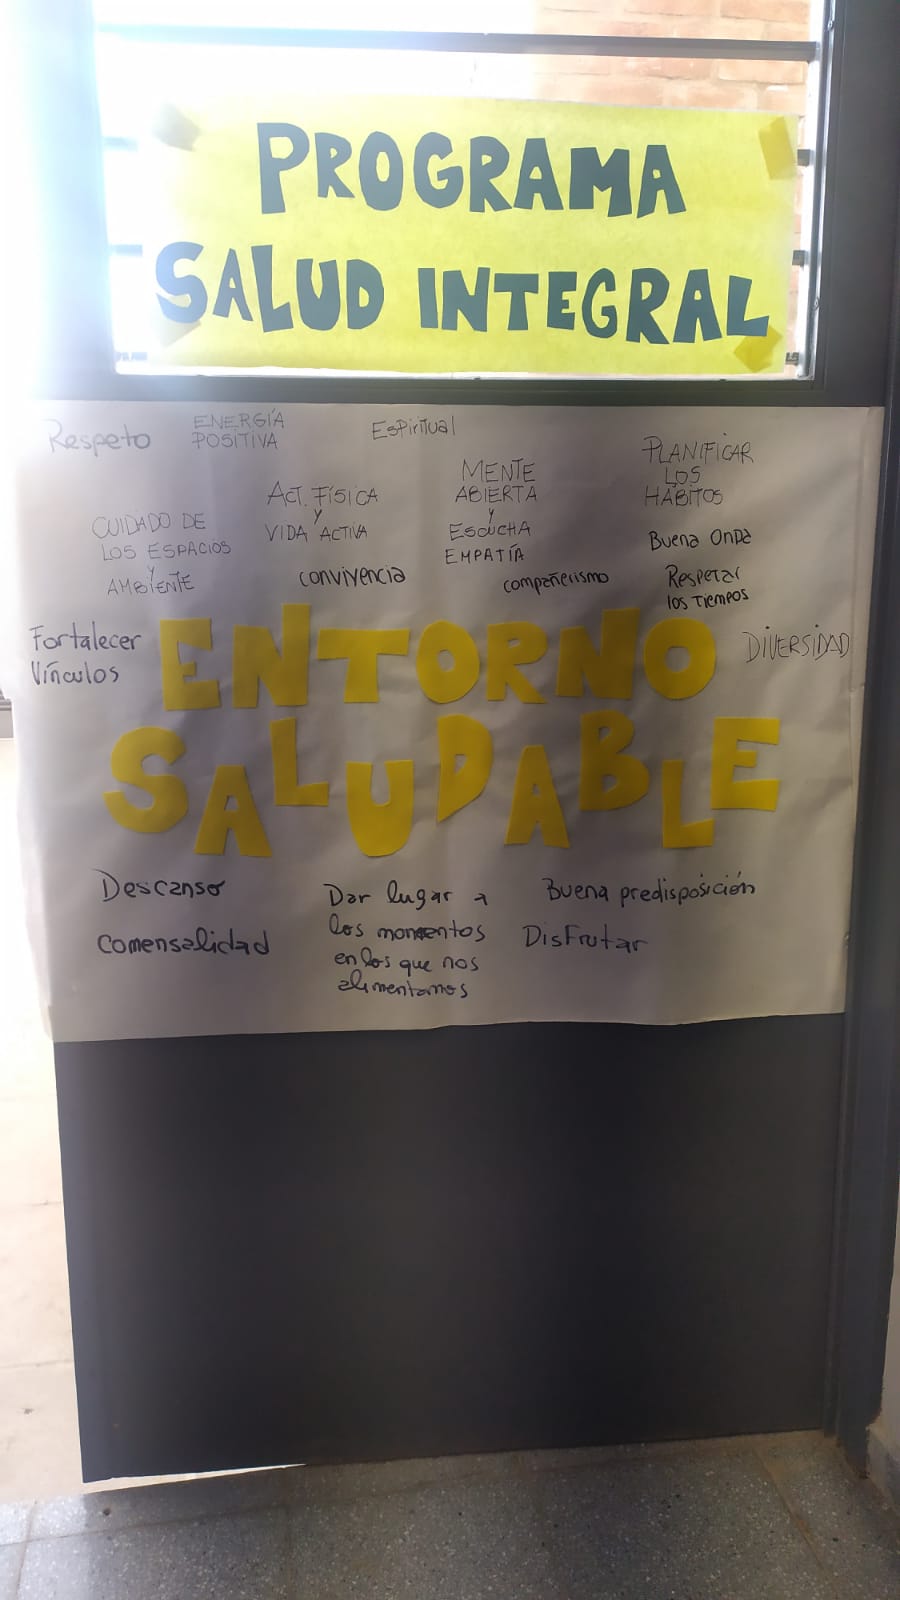 PROGRAMA
SALUD INTEGRAL
Respeto
ENERGÍA
POSITIVA
Espiritual
PLANIFICAR
LOS
HÁBITOS
MENTE
ABIERTA
Y
ESCUCHA
EMPATÍA
ACT. FÍSICA
Y
VIDA ACTIVA
CUIDADO DE
LOS ESPACIOS
Y
AMBIENTE
convivencia
compañerismo
Buena onda
Respetar
los tiempos
Fortalecer
Vínculos
DIVERSIDAD
ENTORNO
SALUDABLE
Descanso
Comensalidad
Dar lugar a
los momentos
en los que nos
alimentamos
Buena predisposición
Disfrutar